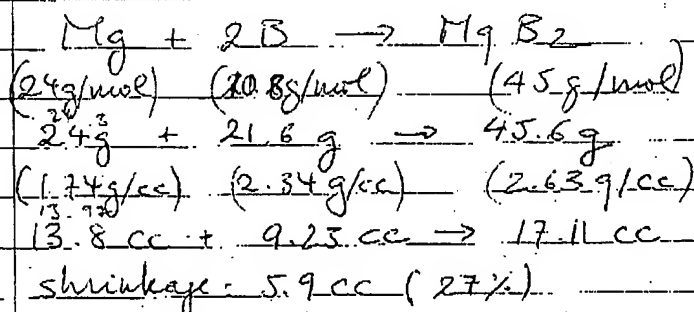 Mg + 2B → MgB2
(24g/mol) (10.8g/mol) (45g/mol)
24.3
24g + 21.6g → 45.6g
(1.74g/cc) (2.34g/cc) (2.63g/cc)
13.97
13.8cc + 9.23cc → 17.11cc
shrinkage = 5.9cc (27%)